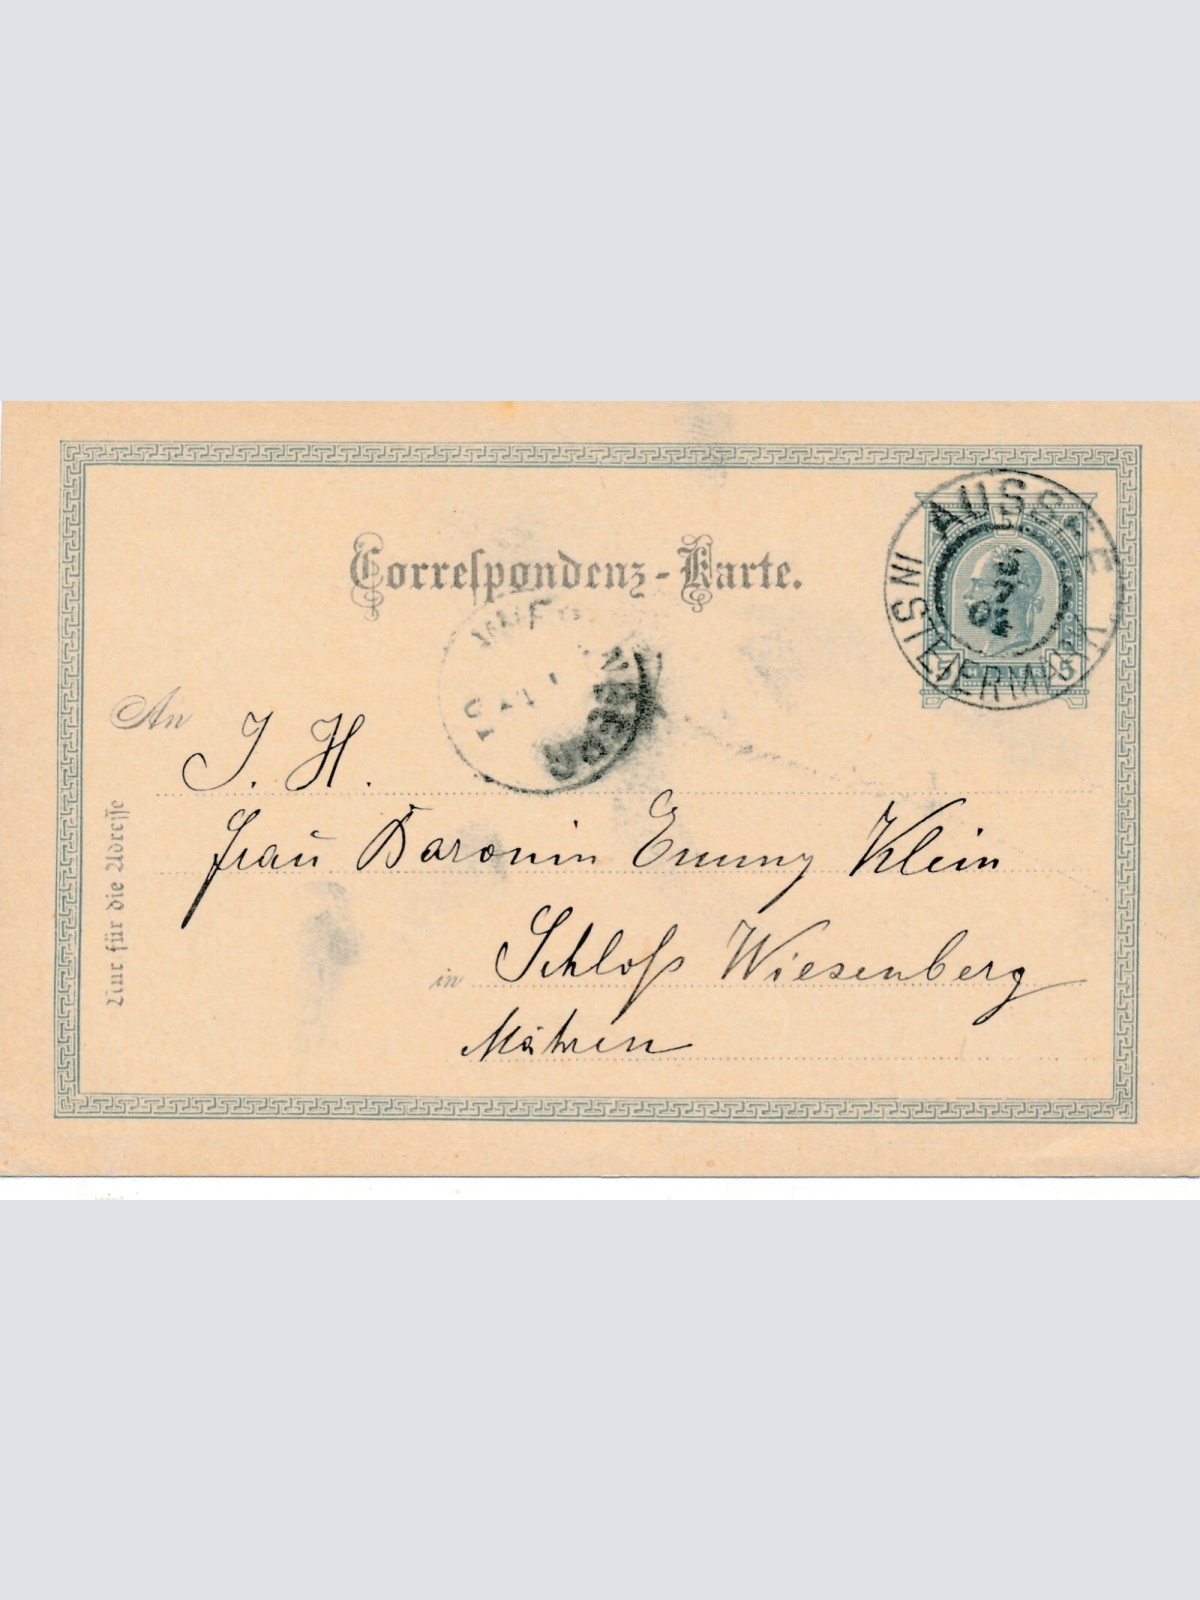 AUSSEE
IN STEIERMARK
5 5
Correspondenz-Karte.
An
J. H.
Frau Baronin Emmy Klein
in Schloß Wiesenberg
Mähren
Nur für die Adresse